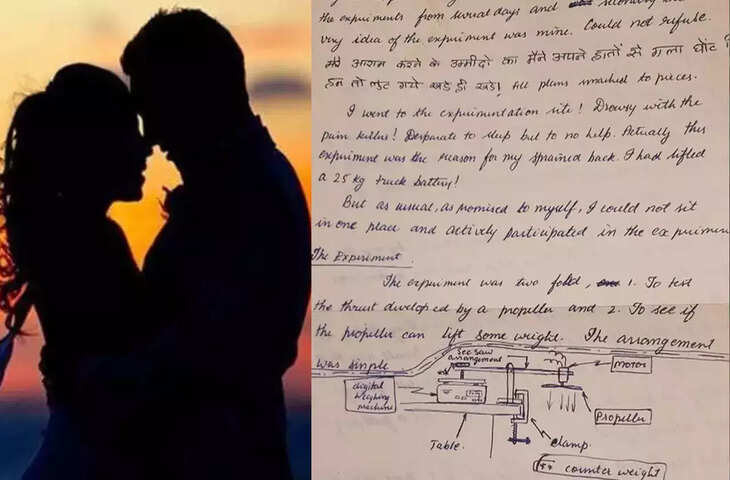 the expriments from sevral days and
very idea of the expriment was mine. Could not refuse.
मेरे आराम करने के उम्मीदो का मैने अपने हातों से गला घोंट
हम तो लुट गये खडे ही खडे! All plans smached to pieces.
I went to the expriimentation site! Drowsy with the
pain killer! Desparate to sleep but to no help. Actually this
expriment was the reason for my sprained back. I had lifted
a 25 kg truck battery!
But as usual, as promised to myself, I could not sit
in one place and actively participated in the exprimen
The Expriment.
The expriment was two fold, 1. To test
the thrust developed by a propeller and 2. To see if
the propeller can lift some weight. The arrangement
was simple
see saw
arrangement
motor
digital
Weighing
machine
Propeller
Table.
clamp.
counter weight